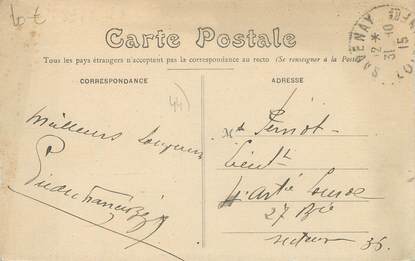 10 €
Carte Postale
Tous les pays étrangers n'acceptent pas la correspondance au recto (Se renseigner à la Poste)
CORRESPONDANCE
ADRESSE
SAVENAY
12 *
31-10
15
44)
Meilleurs
Lieut
4e Artie Lourde
27 Bie
secteur 35.